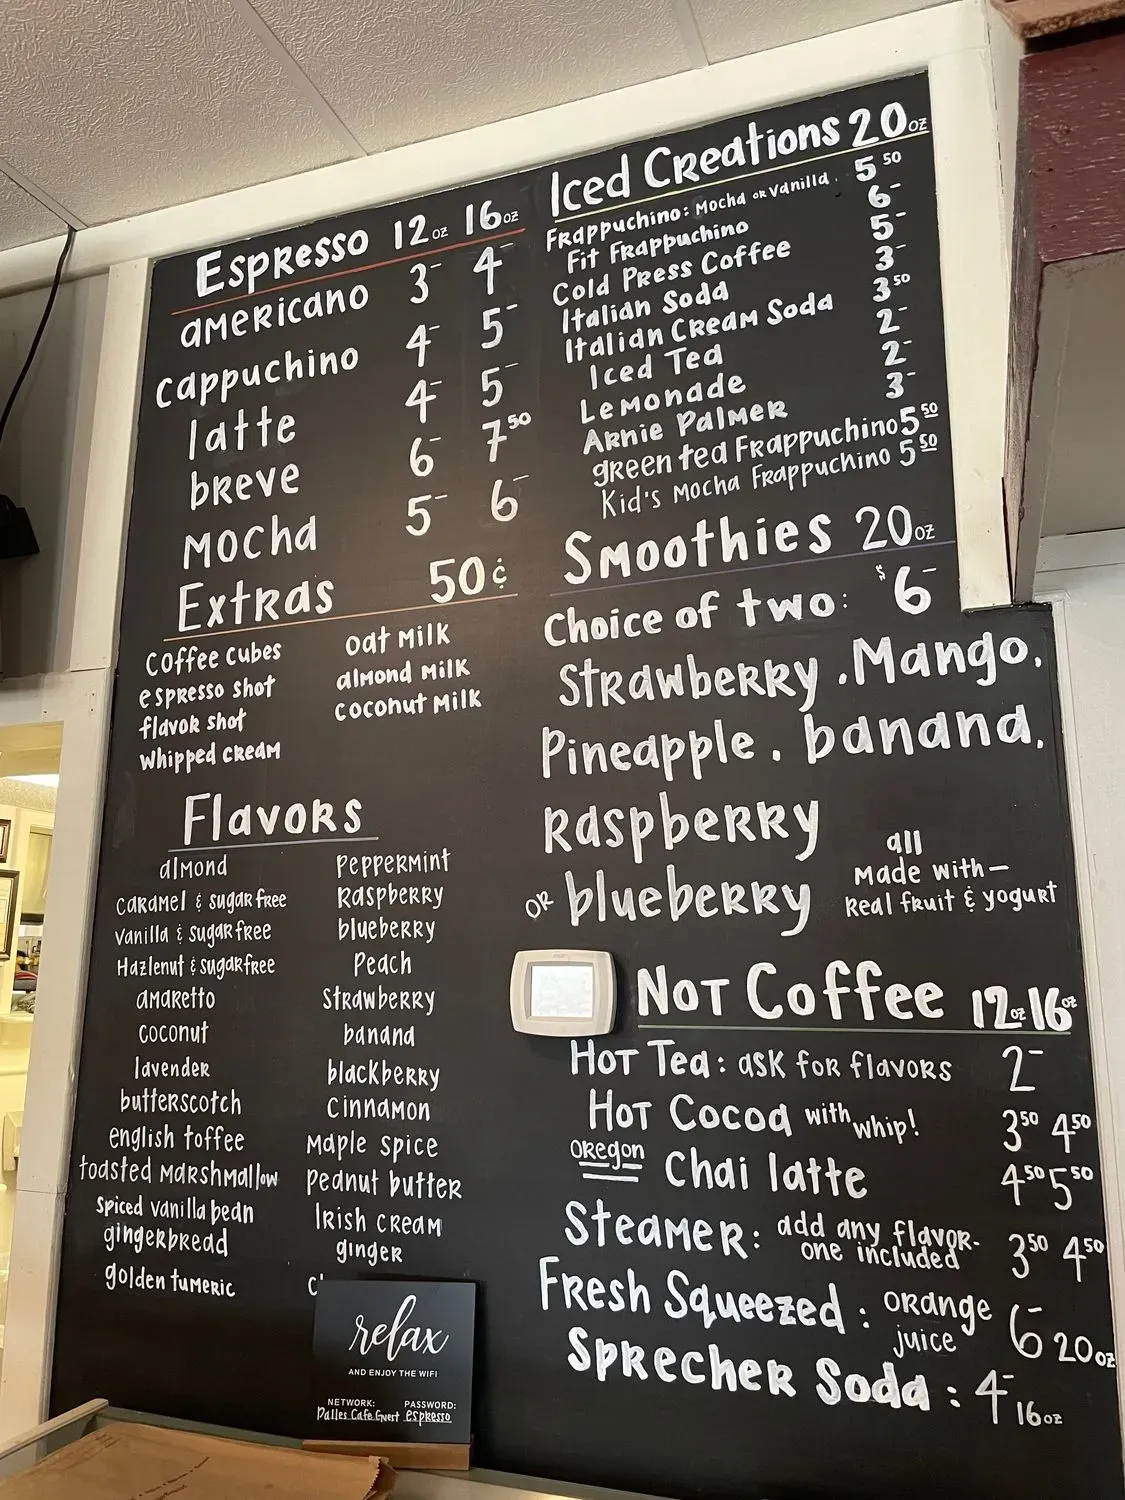 Espresso 12oz 16oz
americano 3- 4-
cappuchino 4- 5-
latte 4- 5-
breve 6- 7 50
Mocha 5- 6-
Extras 50¢
Coffee cubes
espresso shot
flavor shot
whipped cream
oat Milk
almond Milk
coconut Milk
Flavors
almond
caramel & sugar free
vanilla & sugar free
Hazlenut & sugar free
amaretto
coconut
lavender
butterscotch
english toffee
toasted marshmallow
spiced vanilla bean
gingerbread
golden tumeric
Peppermint
Raspberry
blueberry
Peach
Strawberry
banana
blackberry
Cinnamon
Maple spice
Peanut butter
Irish cream
ginger
relax
AND ENJOY THE WIFI
NETWORK: PASSWORD:
Dalles Cafe Guest espresso
Iced Creations 20oz
Frappuchino: Mocha or vanilla 5 50
Fit Frappuchino 6-
Cold Press Coffee 5-
Italian Soda 3-
Italian Cream Soda 3 50
Iced Tea 2-
Lemonade 2-
Arnie Palmer 3-
green tea Frappuchino 5 50
Kid's Mocha Frappuchino 5 50
Smoothies 20oz
Choice of two: $6-
Strawberry . Mango.
Pineapple . banana.
Raspberry
or blueberry
all
Made with—
Real fruit & yogurt
Not Coffee 12oz 16oz
Hot Tea: ask for flavors 2-
Hot Cocoa with whip! 3 50 4 50
Oregon Chai latte 4 50 5 50
Steamer: add any flavor-
one included 3 50 4 50
Fresh Squeezed: orange
juice 6- 20oz
Sprecher Soda: 4- 16oz